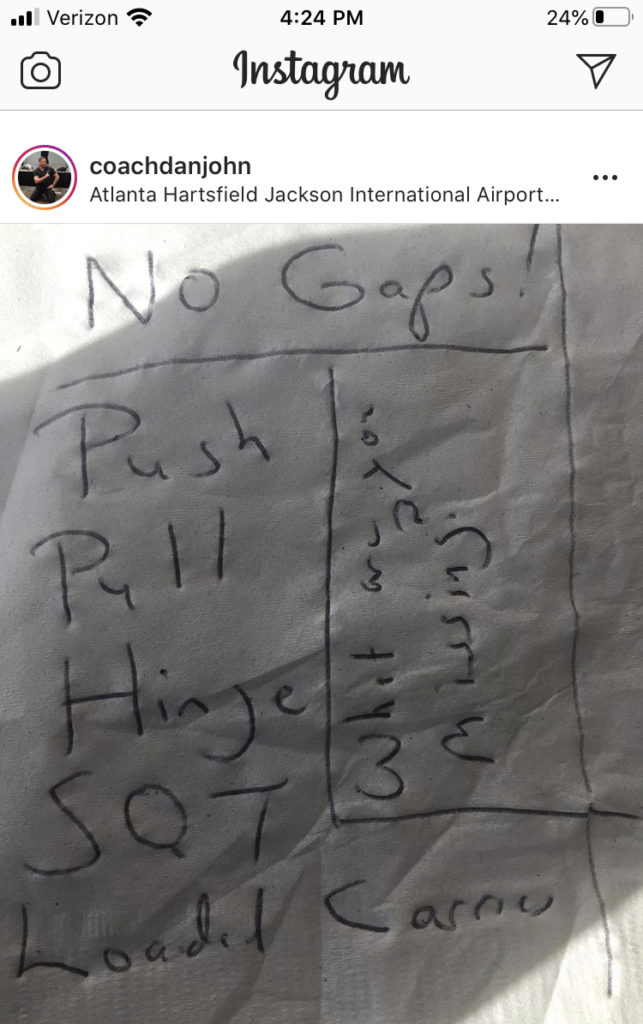 Verizon 4:24 PM 24%
Instagram
coachdanjohn
Atlanta Hartsfield Jackson International Airport...
No Gaps!
Push
Pull
Hinge
SQT
What are You
Missing
Loaded Carries